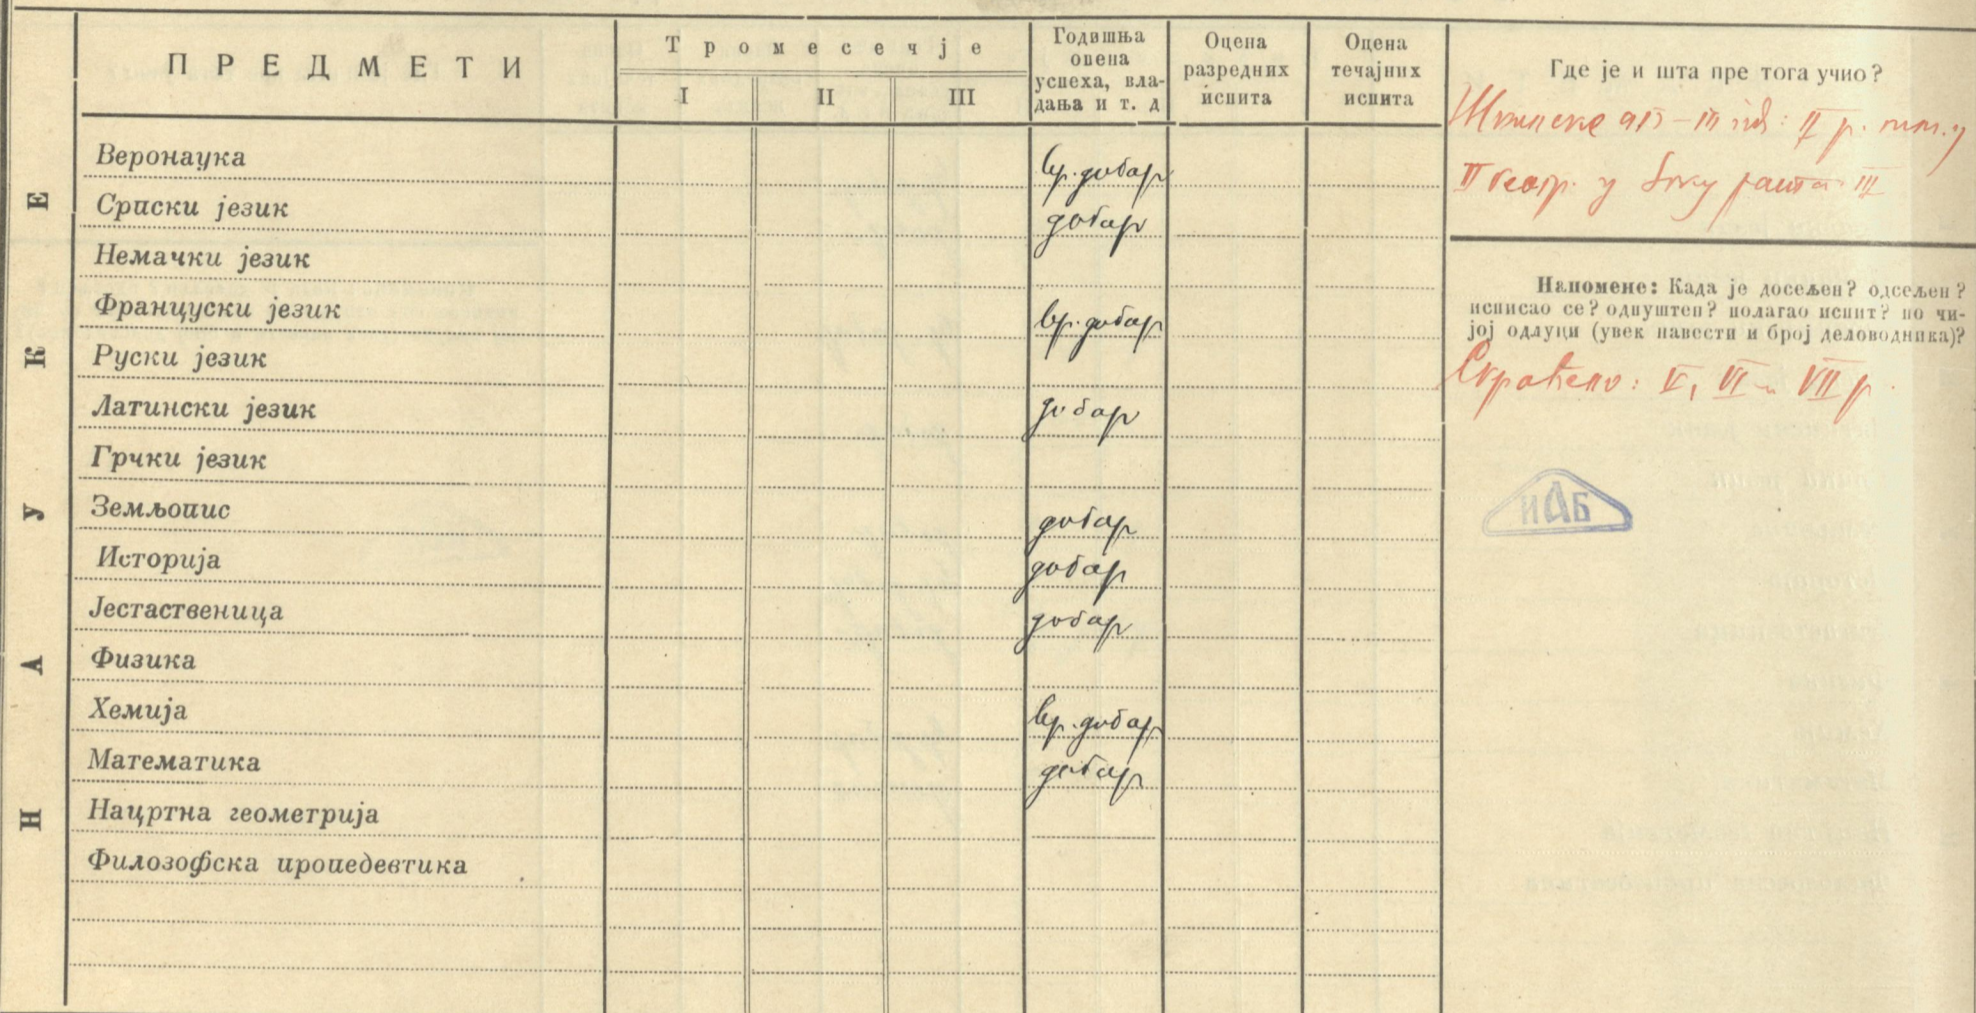 ПРЕДМЕТИ
Тромесечје
I II III
Годишња
оцена
успеха, вла-
дања и т. д
Оцена
разредних
испита
Оцена
течајних
испита
Где је и шта пре тога учио?
НАУКЕ
Веронаука вр. добар
Српски језик добар
Немачки језик
Француски језик вр. добар
Руски језик
Латински језик добар
Грчки језик
Земљопис добар
Историја добар
Јестаственица добар
Физика
Хемија вр. добар
Математика добар
Нацртна геометрија
Филозофска пропедевтика
II р.
II у III
Напомене: Када је досељен? одсељен?
исписао се? одпуштен? полагао испит? по чи-
јој одлуци (увек навести и број деловодника)?
Скраћено: V, VI и VII р.
ИАБ